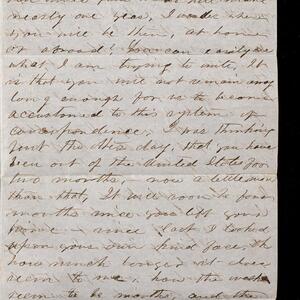 nearly one year, I wonder where
you will be then, at home
or abroad! You can easily see
what I am trying to write, It
is that you will not remain any
long enough for us to become
accustomed to this system of
correspondence. I was thinking
just the other day, that you have
been out of the United States for
two months, now a little more
than that, It will soon be four
months since you left your
home — since last I looked
upon your own kind face, Oh
how much longer it does
seem to me, how the weeks
seem to be months, and the